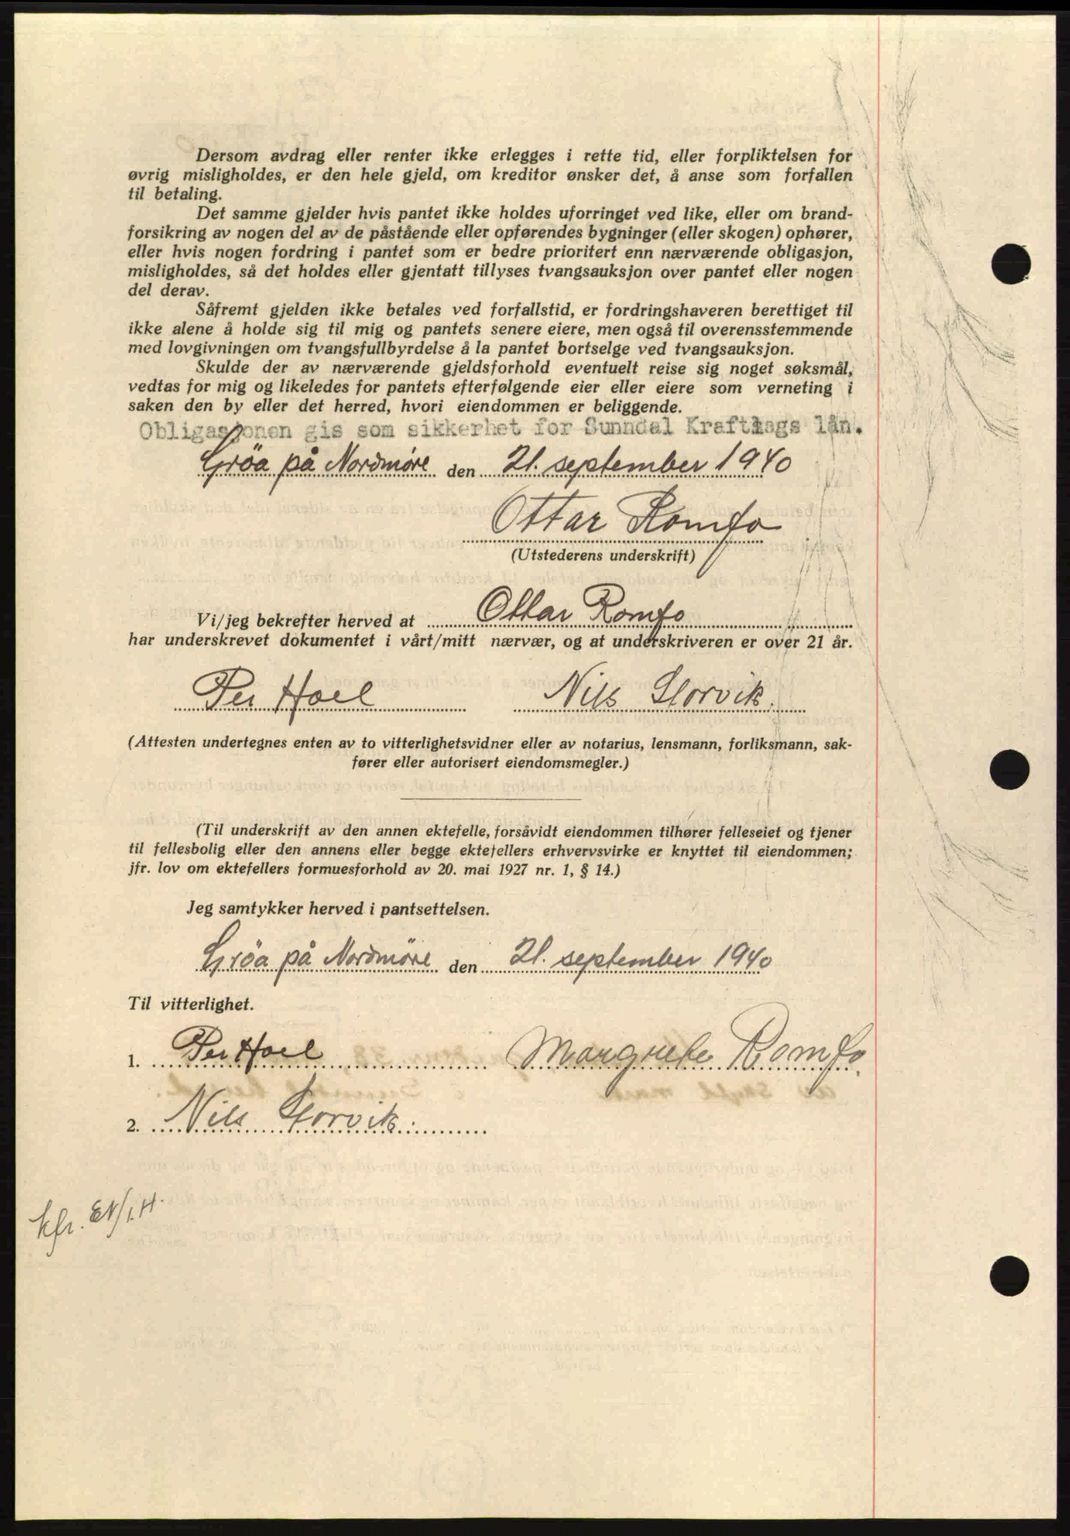 Dersom avdrag eller renter ikke erlegges i rette tid, eller forpliktelsen for
øvrig misligholdes, er den hele gjeld, om kreditor ønsker det, å anse som forfallen
til betaling.
Det samme gjelder hvis pantet ikke holdes uforringet ved like, eller om brand-
forsikring av nogen del av de påstående eller opførendes bygninger (eller skogen) ophører,
eller hvis nogen fordring i pantet som er bedre prioritert enn nærværende obligasjon,
misligholdes, så det holdes eller gjentatt tillyses tvangsauksjon over pantet eller nogen
del derav.
Såfremt gjelden ikke betales ved forfallstid, er fordringshaveren berettiget til
ikke alene å holde sig til mig og pantets senere eiere, men også til overensstemmende
med lovgivningen om tvangsfullbyrdelse å la pantet bortselge ved tvangsauksjon.
Skulde der av nærværende gjeldsforhold eventuelt reise sig noget søksmål,
vedtas for mig og likeledes for pantets efterfølgende eier eller eiere som verneting i
saken den by eller det herred, hvori eiendommen er beliggende.
Obligasjonen gis som sikkerhet for Sunndal Kraftlags lån.
Grøa på Nordmøre den 21. september 1940
Ottar Romfo
(Utstederens underskrift)
Vi/jeg bekrefter herved at Ottar Romfo
har underskrevet dokumentet i vårt/mitt nærvær, og at underskriveren er over 21 år.
Per Hoel Nils Storvik.
(Attesten undertegnes enten av to vitterlighetsvidner eller av notarius, lensmann, forliksmann, sak-
fører eller autorisert eiendomsmegler.)
(Til underskrift av den annen ektefelle, forsåvidt eiendommen tilhører felleseiet og tjener
til fellesbolig eller den annens eller begge ektefellers erhvervsvirke er knyttet til eiendommen;
jfr. lov om ektefellers formuesforhold av 20. mai 1927 nr. 1, § 14.)
Jeg samtykker herved i pantsettelsen.
Grøa på Nordmøre den 21. september 1940
Til vitterlighet.
1. Per Hoel Margrete Romfo.
2. Nils Storvik.
kfr. EN/I.H.